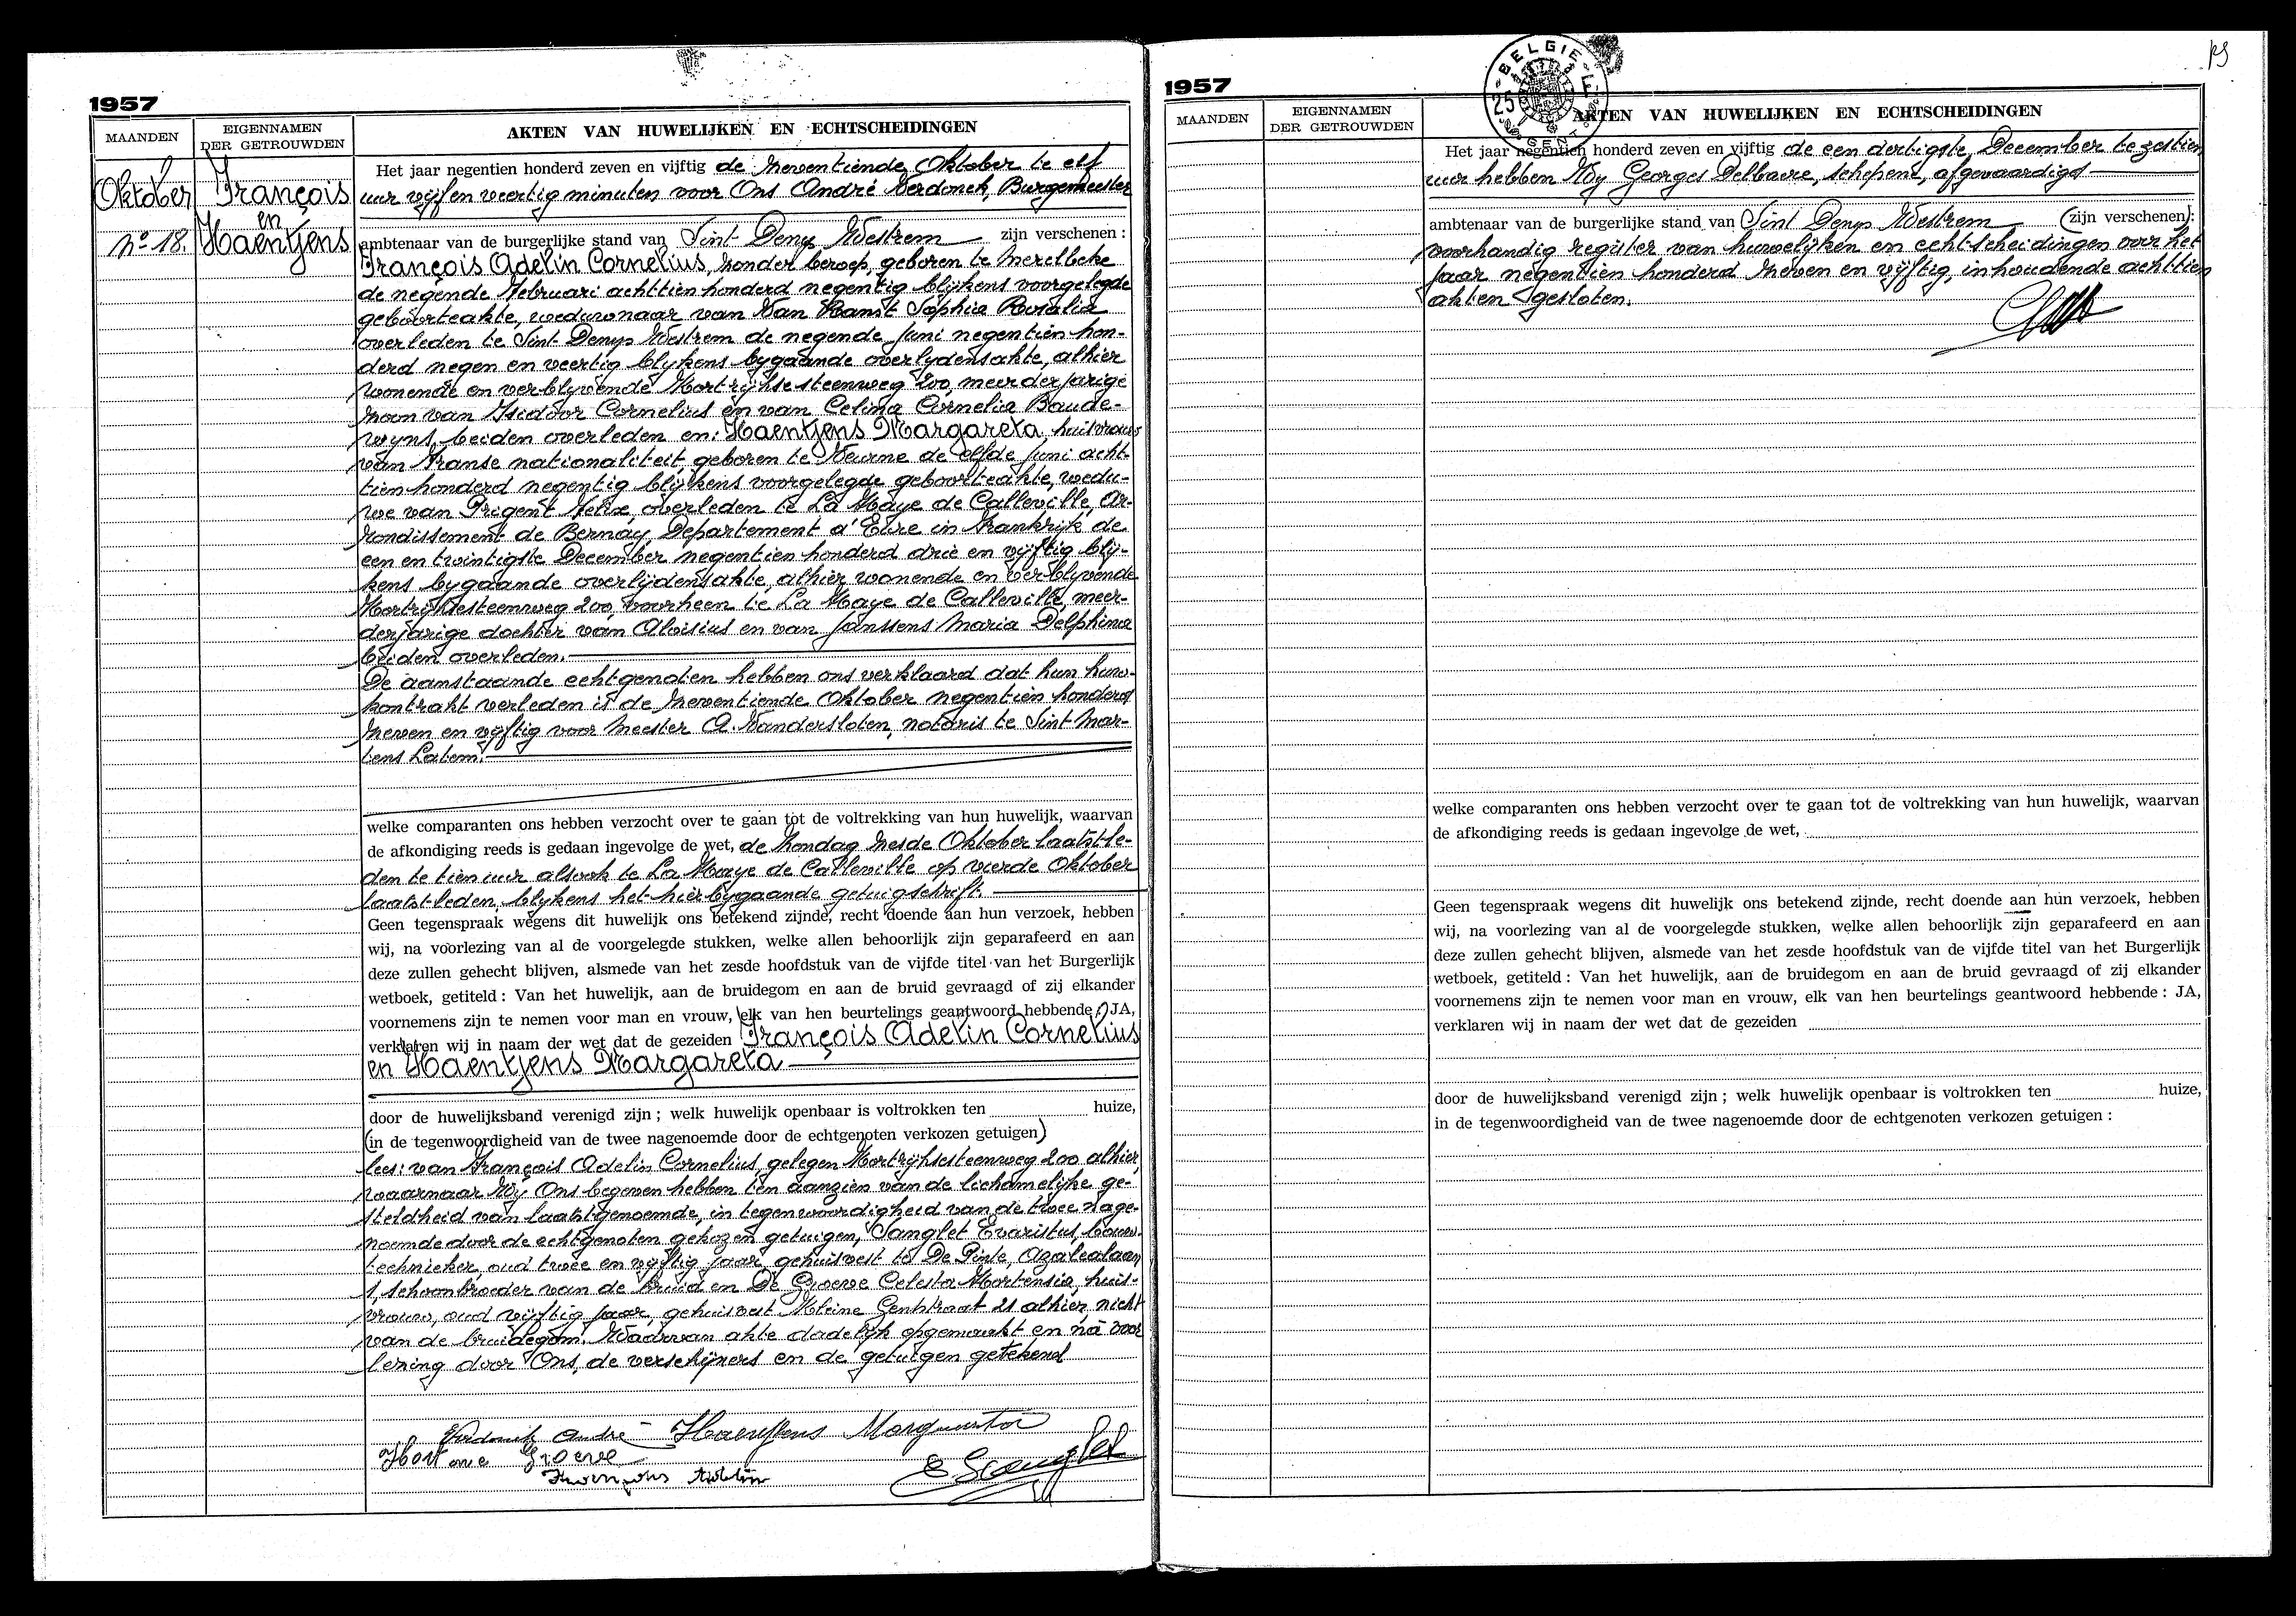 1957
MAANDEN
EIGENNAMEN
DER GETROUWDEN
AKTEN VAN HUWELIJKEN EN ECHTSCHEIDINGEN
Oktober
No 18.
François
en
Haentjens
Het jaar negentien honderd zeven en vijftig de zeventiende Oktober te elf
uur vijf en veertig minuten voor Ons André Verdonck, Burgemeester
ambtenaar van de burgerlijke stand van Sint Denys Westrem zijn verschenen :
François Adelin Cornelius, zonder beroep, geboren te Merelbeke
de negende Februari achttien honderd negentig blijkens voorgelegde
geboorteakte, weduwnaar van Van Ranst Sophia Rosalia
overleden te Sint Denys Westrem de negende Juni negentien hon-
derd negen en veertig blykens bygaande overlydensakte, alhier
wonende en verblyvende Kortrijksesteenweg 200, meerderjarige
zoon van Isidoor Cornelius en van Celina Cornelia Baude-
wyns, beiden overleden en: Haentjens Margareta, huisvrouw
van Franse nationaliteit, geboren te Veurne de elfde Juni acht-
tien honderd negentig blijkens voorgelegde geboorteakte, wedu-
we van Prigent Felix, overleden te La Haye de Calleville, Ar-
rondissement de Bernay, Departement d'Eure in Frankrijk de
een en twintigste December negentien honderd drie en vijftig blij-
kens bygaande overlijdensakte, alhier wonende en verblyvende
Kortrijksesteenweg 200, voorheen te La Haye de Calleville, meer-
derjarige dochter van Aloisius en van Janssens Maria Delphina
beiden overleden.
De aanstaande echtgenoten hebben ons verklaard dat hun huw-
kontrakt verleden is de zeventiende Oktober negentien honderd
zeven en vijftig voor Meester A. Vandersloten, notaris te Sint Mar-
tens Latem.
welke comparanten ons hebben verzocht over te gaan tot de voltrekking van hun huwelijk, waarvan
de afkondiging reeds is gedaan ingevolge de wet, de Zondag zesde Oktober laatst le-
den te tien uur alsook te La Haye de Calleville op vierde Oktober
laatst leden, blykens het hierbygaande getuigschrift.
Geen tegenspraak wegens dit huwelijk ons betekend zijnde, recht doende aan hun verzoek, hebben
wij, na voorlezing van al de voorgelegde stukken, welke allen behoorlijk zijn geparafeerd en aan
deze zullen gehecht blijven, alsmede van het zesde hoofdstuk van de vijfde titel van het Burgerlijk
wetboek, getiteld : Van het huwelijk, aan de bruidegom en aan de bruid gevraagd of zij elkander
voornemens zijn te nemen voor man en vrouw, elk van hen beurtelings geantwoord hebbende : JA,
verklaren wij in naam der wet dat de gezeiden François Adelin Cornelius
en Haentjens Margareta
door de huwelijksband verenigd zijn ; welk huwelijk openbaar is voltrokken ten huize,
(in de tegenwoordigheid van de twee nagenoemde door de echtgenoten verkozen getuigen)
lees: van François Adelin Cornelius, gelegen Kortrijksesteenweg 200 alhier,
waarnaar Wij Ons begeven hebben ten aanzien van de lichamelijke ge-
steldheid van laatstgenoemde, in tegenwoordigheid van de twee nage-
noemde door de echtgenoten gekozen getuigen, Sanglet Evaristus, bouw-
technieker, oud twee en vijftig jaar, gehuisvest te De Pinte, Azalealaan
1, schoonbroeder van de bruid en De Groeve Celesta Hortensia, huis-
vrouw, oud vijftig jaar, gehuisvest Kleine Gentstraat 21 alhier, nicht
van de bruidegom. Waarvan akte dadelijk opgemaakt en na voor
lezing door Ons, de verschijners en de getuigen getekend
Verdonck André Haentjens Margareta
Groeve
E. Sanglet
1957
BELGIE
25 F
GENT
MAANDEN
EIGENNAMEN
DER GETROUWDEN
AKTEN VAN HUWELIJKEN EN ECHTSCHEIDINGEN
Het jaar negentien honderd zeven en vijftig de een dertigste December te zestien
uur hebben Wij Georges Delbaere, Schepene, afgevaardigd
ambtenaar van de burgerlijke stand van Sint Denys Westrem (zijn verschenen):
voorhandig register van huwelijken en echtscheidingen over het
jaar negentien honderd zeven en vijftig, inhoudende achttien
akten gesloten.
welke comparanten ons hebben verzocht over te gaan tot de voltrekking van hun huwelijk, waarvan
de afkondiging reeds is gedaan ingevolge de wet,
Geen tegenspraak wegens dit huwelijk ons betekend zijnde, recht doende aan hun verzoek, hebben
wij, na voorlezing van al de voorgelegde stukken, welke allen behoorlijk zijn geparafeerd en aan
deze zullen gehecht blijven, alsmede van het zesde hoofdstuk van de vijfde titel van het Burgerlijk
wetboek, getiteld : Van het huwelijk, aan de bruidegom en aan de bruid gevraagd of zij elkander
voornemens zijn te nemen voor man en vrouw, elk van hen beurtelings geantwoord hebbende : JA,
verklaren wij in naam der wet dat de gezeiden
door de huwelijksband verenigd zijn ; welk huwelijk openbaar is voltrokken ten huize,
in de tegenwoordigheid van de twee nagenoemde door de echtgenoten verkozen getuigen :